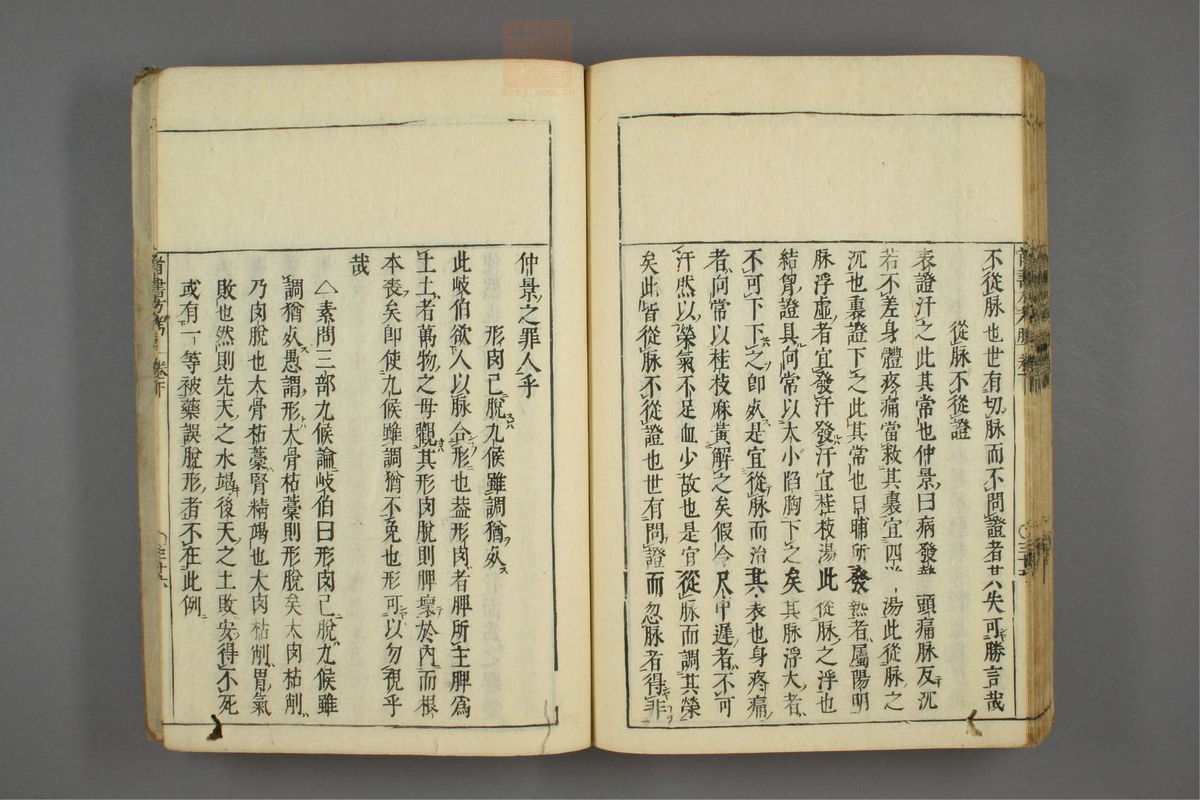 不從脉也世有切脉而不問證者其失可勝言哉
從脉不從證
表證汗之此其常也仲景曰病發熱頭痛脉反沉
若不差身體疼痛當救其裏宜四逆湯此從脉之
沉也裏證下之此其常也日晡所發熱者屬陽明
脉浮虛者宜發汗發汗宜桂枝湯此從脉之浮也
結胷證具向常以大小陷胸下之矣其脉浮大者
不可下下之即死是宜從脉而治其表也身疼痛
者向常以桂枝麻黃解之矣假令尺中遲者不可
汗然以榮氣不足血少故也是宜從脉而調其榮
矣此皆從脉不從證也世有問證而忽脉者得非
仲景之罪人乎
形肉已脫九候雖調猶死
此岐伯欲人以脉合形也葢形肉者脾所主脾爲
土土者萬物之母觀其形肉脫則脾稟於內而根
本喪矣即使九候雖調猶不免也形可以勿視乎
哉
△素問三部九候論岐伯曰形肉已脫九候雖
調猶死愚謂形大骨枯藁則形脫矣大肉枯削
乃肉脫也大骨枯藁腎精竭也大肉枯削胃氣
敗也然則先天之水竭後天之土敗安得不死
或有一等被藥誤脫形者不在此例
zysj.com.cn